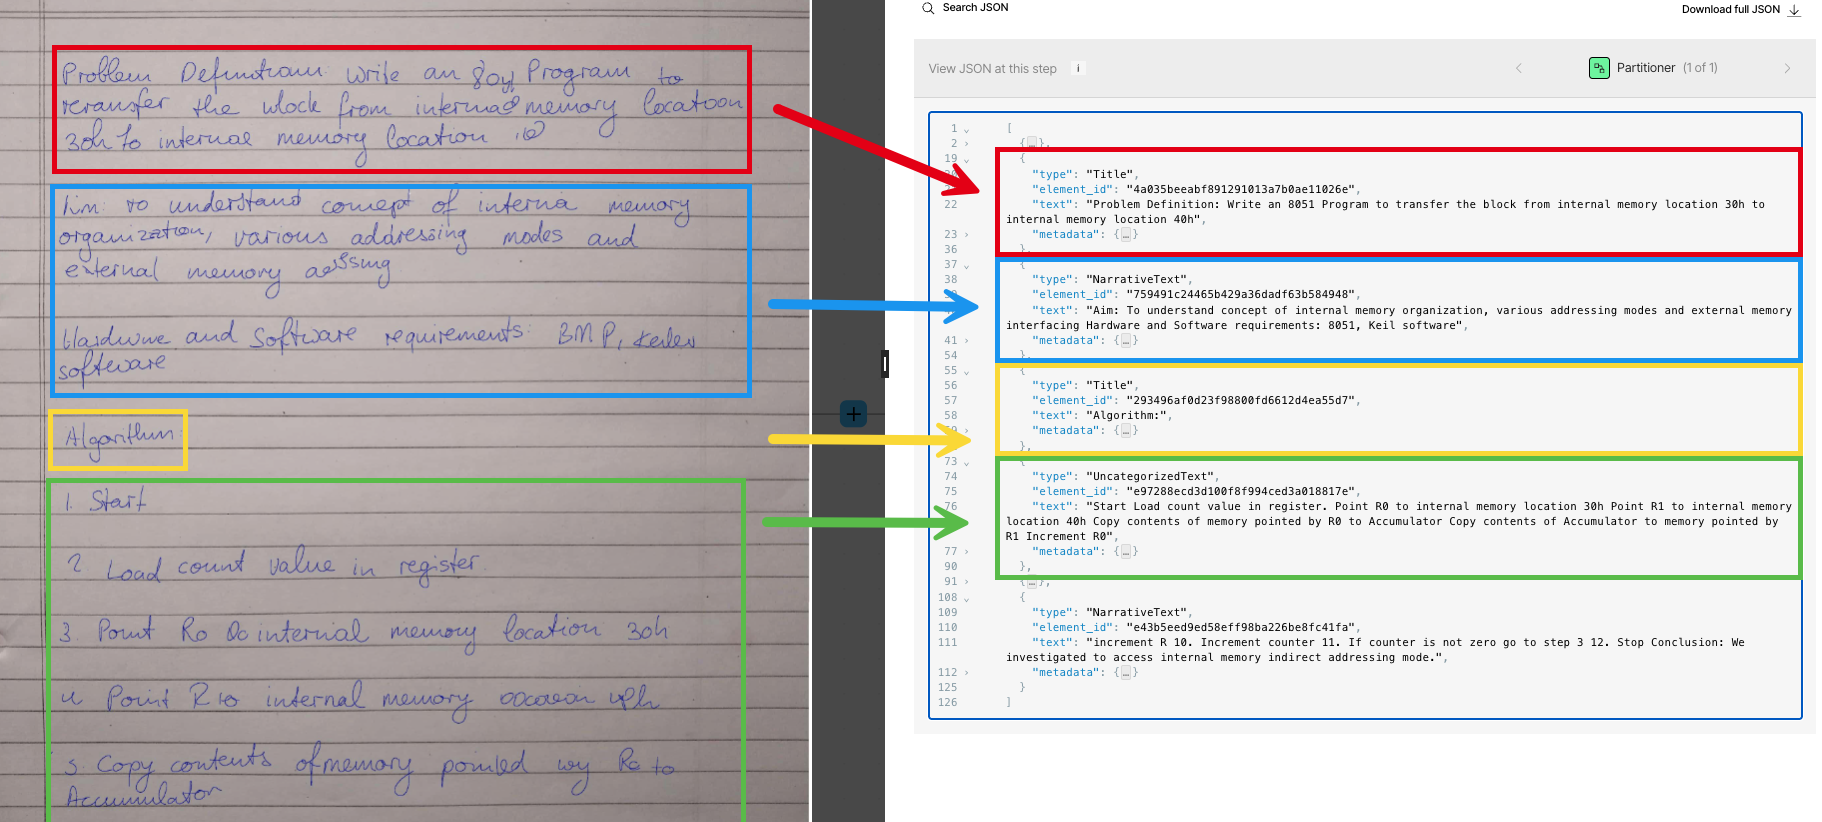 Problem Definition: Write an 8051 Program to
transfer the block from internal memory location
30h to internal memory location
to understand concept of interna memory
organization, various addressing modes and
external memory
Hardware and Software requirements: BMP,
software
Algorithm:
1. Start
2 Load count value in register
3. Point Ro to internal memory location 30h
4 Point R to internal memory
5. Copy contents of memory pointed by Ro to
Accumulator
Search JSON
Download full JSON
View JSON at this step i
Partitioner (1 of 1)
1 [
2 {…},
19 {
"type": "Title",
"element_id": "4a035beeabf891291013a7b0ae11026e",
22 "text": "Problem Definition: Write an 8051 Program to transfer the block from internal memory location 30h to
internal memory location 40h",
23 "metadata": {…}
36 },
37 {
38 "type": "NarrativeText",
"element_id": "759491c24465b429a36dadf63b584948",
"text": "Aim: To understand concept of internal memory organization, various addressing modes and external memory
interfacing Hardware and Software requirements: 8051, Keil software",
41 "metadata": {…}
54 },
55 {
56 "type": "Title",
57 "element_id": "293496af0d23f98800fd6612d4ea55d7",
58 "text": "Algorithm:",
59 "metadata": {…}
},
73 {
74 "type": "UncategorizedText",
75 "element_id": "e97288ecd3d100f8f994ced3a018817e",
76 "text": "Start Load count value in register. Point R0 to internal memory location 30h Point R1 to internal memory
location 40h Copy contents of memory pointed by R0 to Accumulator Copy contents of Accumulator to memory pointed by
R1 Increment R0",
77 "metadata": {…}
90 },
91 {…},
108 {
109 "type": "NarrativeText",
110 "element_id": "e43b5eed9ed58eff98ba226be8fc41fa",
111 "text": "increment R 10. Increment counter 11. If counter is not zero go to step 3 12. Stop Conclusion: We
investigated to access internal memory indirect addressing mode.",
112 "metadata": {…}
125 }
126 ]